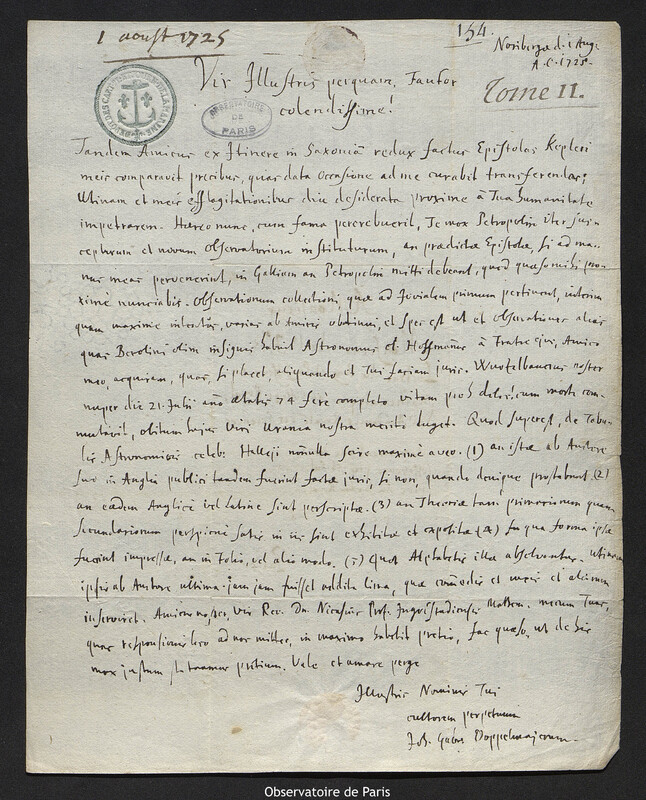 1 aoust 1725
154.
Noribergæ d. 1 Aug.
A. C. 1725.
Tome II.
Vir Illustris perquam, Fautor
colendissime!
OBSERVATOIRE
DE
PARIS
Tandem Amicus ex Itinere in Saxoniam redux factus Epistolas Kepleri
meis comparavit precibus, quas data occasione ad me curabit transferendas;
Utinam et meis efflagitationibus diu desiderata proxime à Tua humanitate
impetrarem. Hæc nunc, cum fama percrebuerit, Te mox Petropolin iter sus-
cepturum et novum observatorium instituturum, an prædictæ Epistolæ, si ad ma-
nus meas pervenerint, in Galliam an Petropolin mitti debeant, quod quæso mihi pro-
xime nunciabis. Observationum collectioni, quæ ad Jovialem primum pertinent, interim
quam maxime intentus, varias ab Amicis obtinui, et spes est ut et observationes alias
quas Berolini olim insignis habuit Astronomus el. Hoffmannus à Fratre ejus, Amico
meo, acquiram, quas, si placet, aliquando et Tui faciam juris. Wurtzelbaurus noster
nuper die 21. Julii año ætatis 74 ferè completo vitam proh dolor! cum morte com-
mutavit, obitum hujus viri Urania nostra meritò luget. Quod superest, de Tabu-
lis Astronomicis celeb. Halleji nonnulla scire maxime aveo. (1) an istæ ab Autore
suo in Anglia publici tandem fuerint factæ juris, si non, quando denique prostabunt. (2)
an eædem Anglicè vel Latine sint perscriptæ. (3) an Theoriæ tam primariorum quam
secundariorum perspicuè satis in iis sint exhibitæ et expositæ (4) In qua forma ipsæ
fuerint impressæ, an in Folio, vel alio modo. (5) Quot Alphabetis illæ absolvantur. Utinam
ipsis ab Autore ultima jam jam fuisset addita lima, quæ commodis et meis et aliorum
inserviret. Amicus noster, Vir Rev. Dn. Nicasius Prof. Ingolstadiensis Mathem. mecum Tuas,
quas responsionis loco ad nos mittes, in maximo habebit pretio, fac quæso, ut de his
mox justum statuamus pretium. Vale et amare perge
Illustris Nominis Tui
cultorem perpetuum
Joh. Gabr. Doppelmajerum.
Observatoire de Paris